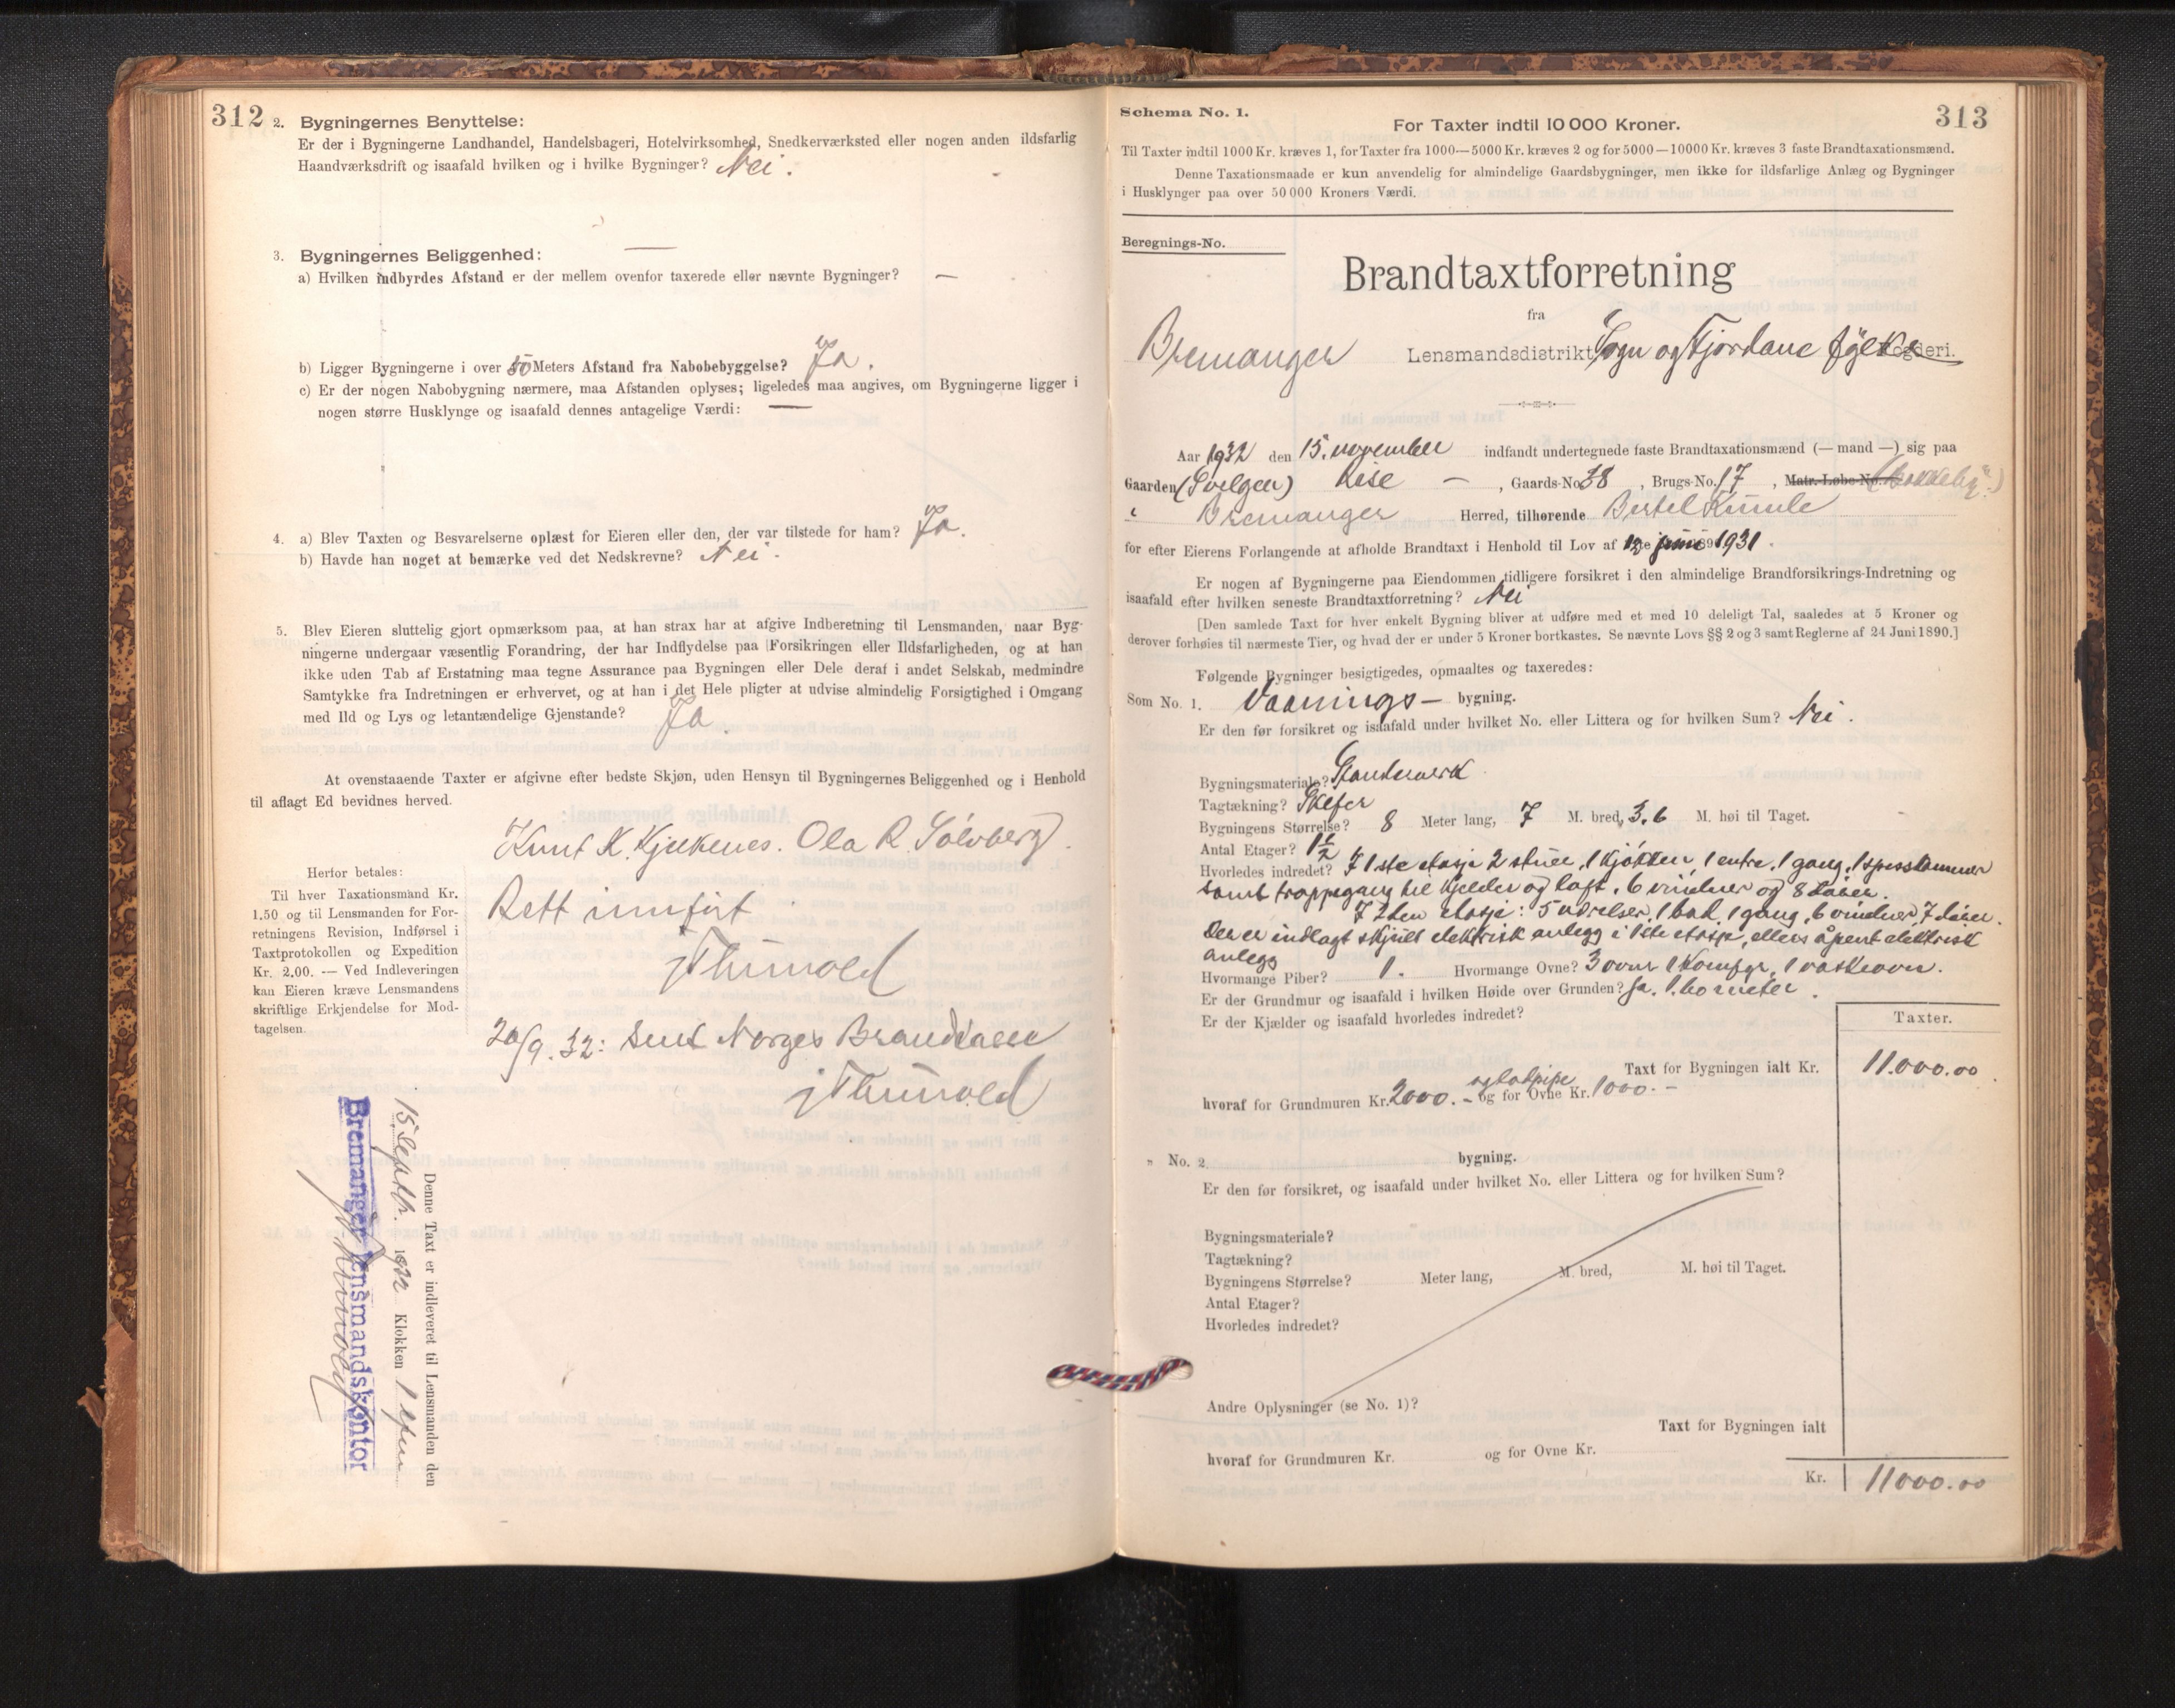 312
2. Bygningernes Benyttelse:
Er der i Bygningerne Landhandel, Handelsbageri, Hotelvirksomhed, Snedkerværksted eller nogen anden ildsfarlig
Haandværksdrift og isaafald hvilken og i hvilke Bygninger? Nei.
3. Bygningernes Beliggenhed: —
a) Hvilken indbyrdes Afstand er der mellem ovenfor taxerede eller nævnte Bygninger? —
b) Ligger Bygningerne i over 50 Meters Afstand fra Nabobebyggelse? Ja.
c) Er der nogen Nabobygning nærmere, maa Afstanden oplyses; ligeledes maa angives, om Bygningerne ligger i
nogen større Husklynge og isaafald dennes antagelige Værdi: —
4. a) Blev Taxten og Besvarelserne oplæst for Eieren eller den, der var tilstede for ham? Ja.
b) Havde han noget at bemærke ved det Nedskrevne? Nei.
5. Blev Eieren sluttelig gjort opmærksom paa, at han strax har at afgive Indberetning til Lensmanden, naar Byg-
ningerne undergaar væsentlig Forandring, der har Indflydelse paa Forsikringen eller Ildsfarligheden, og at han
ikke uden Tab af Erstatning maa tegne Assurance paa Bygningen eller Dele deraf i andet Selskab, medmindre
Samtykke fra Indretningen er erhvervet, og at han i det Hele pligter at udvise almindelig Forsigtighed i Omgang
med Ild og Lys og letantændelige Gjenstande? Ja
At ovenstaaende Taxter er afgivne efter bedste Skjøn, uden Hensyn til Bygningernes Beliggenhed og i Henhold
til aflagt Ed bevidnes herved.
Knut K. Kjelkenes. Ola R. Sølvberg.
Herfor betales:
Til hver Taxationsmand Kr.
1.50 og til Lensmanden for For-
retningens Revision, Indførsel i
Taxtprotokollen og Expedition
Kr. 2,00. — Ved Indleveringen
kan Eieren kræve Lensmandens
skriftlige Erkjendelse for Mod-
tagelsen.
Rett innført
20/9. 32: Sendt Norges Brandkasse
Denne Taxt er indleveret til Lensmanden den
15 Septbr. 1932 Klokken 1 efm
Bremanger lensmandskontor
Schema No. 1.
313
For Taxter indtil 10 000 Kroner.
Til Taxter indtil 1000 Kr. kræves 1, for Taxter fra 1000—5000 Kr. kræves 2 og for 5000—10000 Kr. kræves 3 faste Brandtaxationsmænd.
Denne Taxationsmaade er kun anvendelig for almindelige Gaardsbygninger, men ikke for ildsfarlige Anlæg og Bygninger
i Husklynger paa over 50 000 Kroners Værdi.
Beregnings-No.
Brandtaxtforretning
fra
Bremanger Lensmandsdistrikt, Sogn og Fjordane fylke Fogderi.
Aar 1932 den 15. november indfandt undertegnede faste Brandtaxationsmænd (— mand —) sig paa
Gaarden (Svelgen) Rise — , Gaards-No. 38 , Brugs-No. 17 , Matr.-Løbe-No.
i Bremanger Herred, tilhørende Bertel Kumle
for efter Eierens Forlangende at afholde Brandtaxt i Henhold til Lov af 12 juni 1931.
Er nogen af Bygningerne paa Eiendommen tidligere forsikret i den almindelige Brandforsikrings-Indretning og
isaafald efter hvilken seneste Brandtaxtforretning? Nei
[Den samlede Taxt for hver enkelt Bygning bliver at udføre med et med 10 deleligt Tal, saaledes at 5 Kroner og
derover forhøies til nærmeste Tier, og hvad der er under 5 Kroner bortkastes. Se nævnte Lovs §§ 2 og 3 samt Reglerne af 24 Juni 1890.]
Følgende Bygninger besigtigedes, opmaaltes og taxeredes:
Som No. 1. Vaanings— bygning.
Er den før forsikret og isaafald under hvilket No. eller Littera og for hvilken Sum? Nei.
Bygningsmateriale? Standerverk
Tagtækning? Skifer
Bygningens Størrelse? 8 Meter lang, 7 M. bred, 3.6 M. høi til Taget.
Antal Etager? 1½
Hvorledes indredet? I 1ste etasje 2 stuer, 1 kjøkken, 1 entre, 1 gang, 1 spisskammer
samt trappegang til kjelder og loft. 6 vinduer og 8 dører.
I 2den etasje: 5 værelser, 1 bad, 1 gang, 6 vinduer, 7 dører.
Der er indlagt skjult elektrisk anlegg i 1ste etasje, ellers åpent elektrisk
anlegg
Hvormange Piber? 1. Hvormange Ovne? 3 ovner 1 komfyr, 1 vaskeovn.
Er der Grundmur og isaafald i hvilken Høide over Grunden? Ja. 1.60 meter.
Er der Kjælder og isaafald hvorledes indredet?
Taxter.
Taxt for Bygningen ialt Kr. 11.000.00
hvoraf for Grundmuren Kr. 2000.— og for Ovne Kr. 1000.—
„ No. 2. bygning.
Er den før forsikret, og isaafald under hvilket No. eller Littera og for hvilken Sum?
Bygningsmateriale?
Tagtækning?
Bygningens Størrelse? Meter lang, M. bred, M. høi til Taget.
Antal Etager?
Hvorledes indredet?
Andre Oplysninger (se No. 1)?
Taxt for Bygningen ialt
hvoraf for Grundmuren Kr. og for Ovne Kr.
Kr. 11000.00